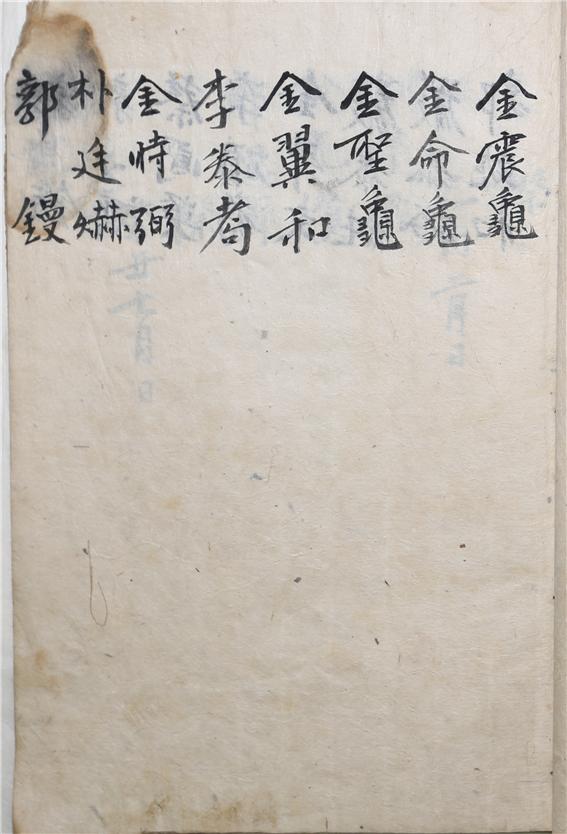 金震龜
金命龜
金聖龜
金翼和
李泰耈
金時弼
朴廷爀
郭鏝